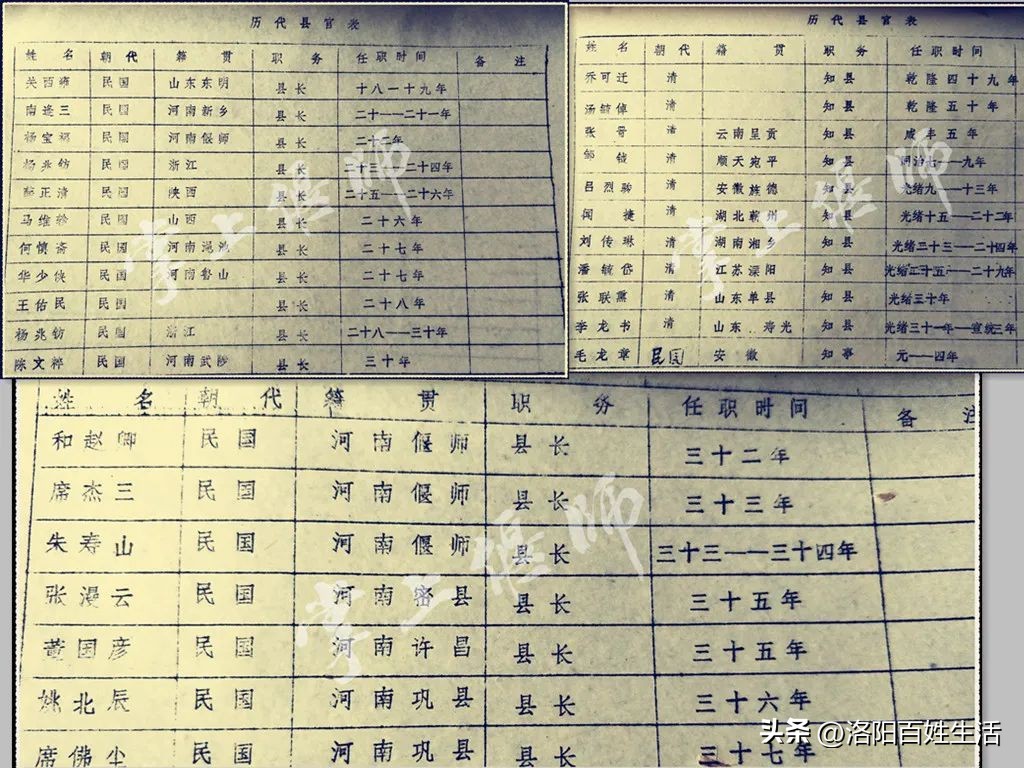 历代县官表
姓名 朝代 籍贯 职务 任职时间 备注
关西雍 民国 山东东明 县长 十八一十九年
南逢三 民国 河南新乡 县长 二十一—二十一年
杨宝 民国 河南偃师 县长 二十 年
杨兆钫 民国 浙江 县长 二十 —二十四年
正清 民国 陕西 县长 二十五—二十六年
马维 民国 山西 县长 二十六年
何慎斋 民国 河南渑池 县长 二十七年
华少侠 民国 河南鲁山 县长 二十七年
王佑民 民国 县长 二十八年
杨兆钫 民国 浙江 县长 二十八—三十年
陈文粹 民国 河南武陟 县长 三十年
历代县官表
姓名 朝代 籍贯 职务 任职时间
乔可迁 清 知县 乾隆四十九年
汤毓倬 清 知县 乾隆五十年
张 清 云南呈贡 知县 咸丰五年
邹 清 顺天宛平 知县 同治七—九年
吕烈 清 安徽旌德 知县 光绪九—十三年
闻捷 清 湖北蕲州 知县 光绪十五—二十二年
刘传琳 清 湖南湘乡 知县 光绪三十三—二十四年
潘毓岱 清 江苏溧阳 知县 光绪二十五—二十九年
张联熏 清 山东单县 知县 光绪三十年
李龙书 清 山东寿光 知县 光绪三十一年—宣统三年
毛龙章 民国 安徽 知事 元一四年
姓名 朝代 籍贯 职务 任职时间 备注
和赵卿 民国 河南偃师 县长 三十二年
席杰三 民国 河南偃师 县长 三十三年
朱寿山 民国 河南偃师 县长 三十三一—三十四年
张漫云 民国 河南密县 县长 三十五年
董国彦 民国 河南许昌 县长 三十五年
姚北辰 民国 河南巩县 县长 三十六年
席佛尘 民国 河南巩县 县长 三十七年
掌上偃师
掌上偃师
掌上偃师
头条 @洛阳百姓生活